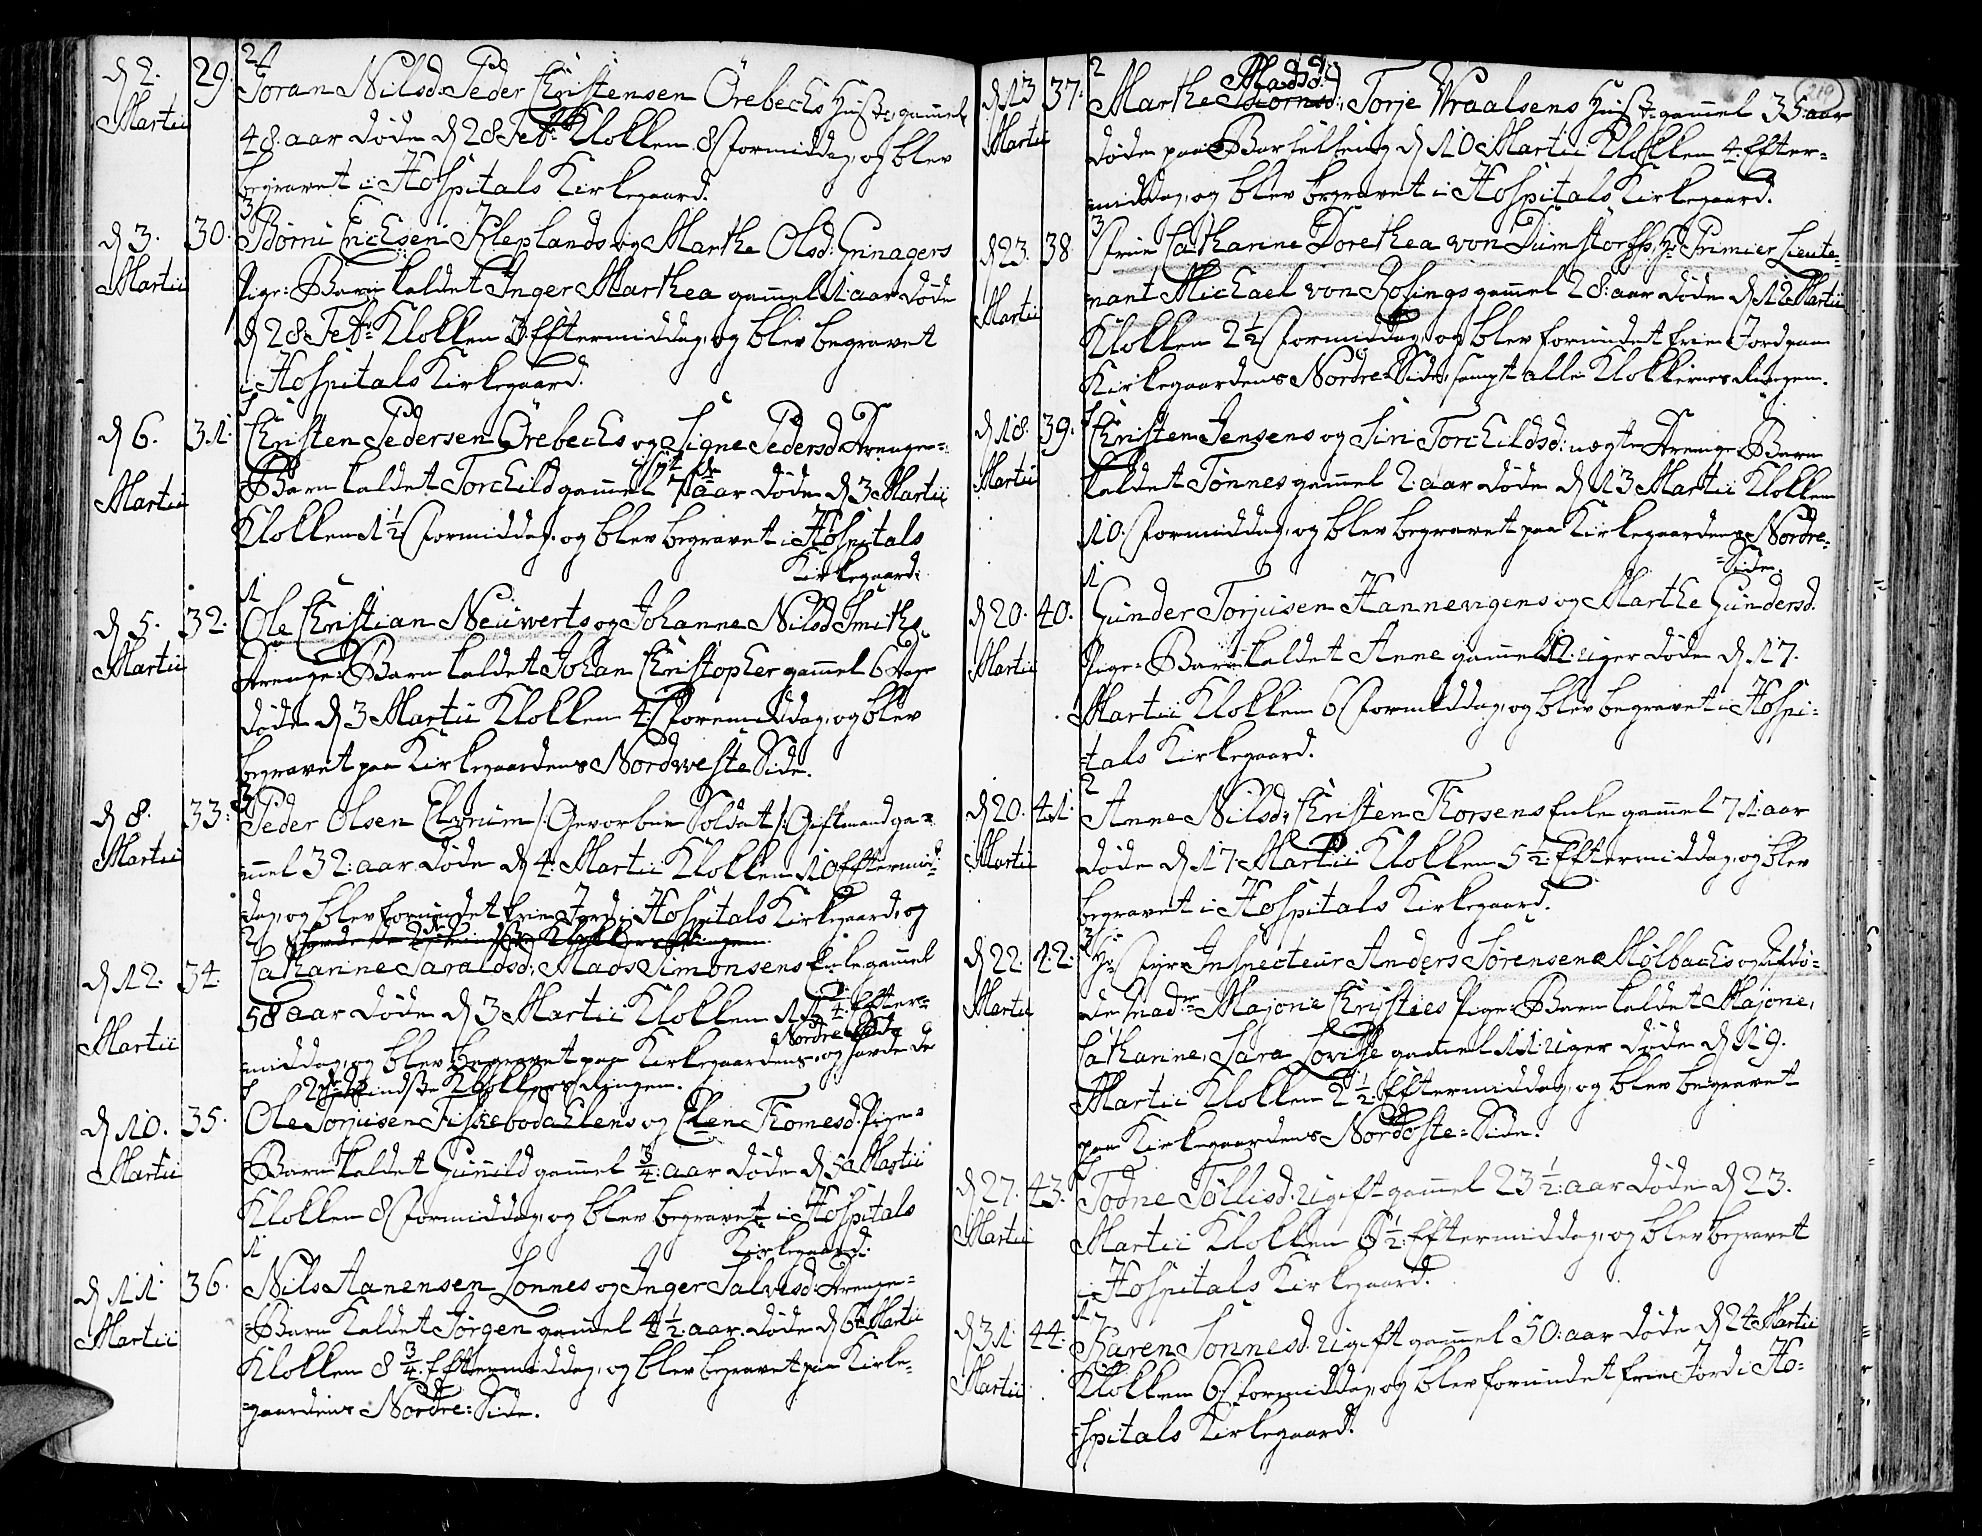 d 2. Martii 29. Joran Nilsd: Peder Christensen Örebechs Hustr: gammel
48 aar døde d 28 Febr: Klokken 8 Formiddag, og blev
begravet i Hospitals Kirkegaard.
d 3. Martii 30. Børni Erichsen Kleplands og Marthe Olsd: Grinagers
Pige-Barn kaldet Inger Marthea gammel 1: aar døde
d 28 Febr: Klokken 3 Eftermiddag, og blev begravet
i Hospitals Kirkegaard.
d 6. Martii 31. Christen Pedersen Örebechs og Signe Pedersd: Drenge-
Barn kaldet Torchild gammel 7 aar døde d 3 Martii
Klokken 1 1/2 Formiddag, og blev begravet i Hospitals
Kirkegaard:
d 5. Martii 32. Ole Christian Neüwerts og Johanne Nilsd Smiths
Drenge-Barn kaldet Johan Christopher gammel 6 Dage
døde d 3 Martii Klokken 4 Formiddag, og blev
begravet paa Kirkegaardens Nordweste Side.
d 8. Martii 33: Peder Olsen Elvrum /: Gevorben Soldat :/ Giftmand ga-
mmel 32: aar døde d 4: Martii Klokken 10 Eftermid-
dag, og blev forundet frie Jord i Hospitals Kirkegaard, og
havde de 2de mindste Klokkers Ringen.
d 12. Martii 34. Catharine Saraldsd: Mads Simonsens Enke gammel
58 aar døde d 3 Martii Klokken 11 1/2 Efter-
middag, og blev begravet paa Kirkegaardens Nordre Side, og havde de
2de mindste Klokkers Ringen.
d 10. Martii 35. Ole Torjusen Fiskebodælens og Elen Thomesd: Pige-
Barn kaldet Gunild gammel 3/4: aar døde d 5 Martii
Klokken 8 Formiddag, og blev begravet i Hospitals
Kirkegaard:
d 11. Martii 36. Nils Aanensen Lonnes og Inger Salvesd: Drenge-
Barn Kaldet Jørgen gammel 4 1/2: aar døde d 6 Martii
Klokken 8 3/4: Eftermiddag, og blev begravet paa Kirke-
gaardens Nordre-Side.
219
d 13 Martii 37. Marthe Madsd: Torje Wraalsens Hustr: gammel 35 aar
døde paa Barselseng d 10 Martii Klokken 4 Efter-
middag, og blev begravet i Hospitals Kirkegaard.
d 23. Martii 38 Frue Catharine Dorethea von Dumstorffs, Hr Primier Lieute-
nant Michael von Rosings gammel 28: aar døde d 12 Martii
Klokken 2 1/2 Formiddag, og blev forundet frie Jord paa
Kirkegaardens Nordre Side, sampt alle Klokkernes Ringen.
d 18. Martii 39. Christen Jensens og Siri Torchildsd: uægte Drenge-Barn
kaldet Tønnes gammel 2: aar døde d 13 Martii Klokken
10. Formiddag, og blev begravet paa Kirkegaardens Nordre-
Side.
d 20. Martii 40. Gunder Torjusen Hannevigens og Marthe Gundersd:
Pige-Barn kaldet Anne gammel 12: uger døde d 17.
Martii Klokken 6 Formiddag, og blev begravet i Hospi-
tals Kirkegaard.
d 20. Martii 41. Anne Nilsd, Christen Thorsens Enke gammel 71: aar
døde d 17 Martii Klokken 5 1/2: Eftermiddag, og blev
begravet i Hospitals Kirkegaard.
d 22. Martii 42. Hr Fyr-Inspecteur Anders Sørensen Mølbachs og Afdø-
de Madme Majorie Christies Pige-Barn kaldet Majorie,
Catharine, Sara Lovise gammel 11: uger døde d 19.
Martii Klokken 2 1/2: Eftermiddag, og blev begravet
paa Kirkegaardens Nordoste-Side.
d 27. Martii 43. Todne Tøllisd: ugift gammel 23 1/2: aar døde d 23.
Martii Klokken 6 1/2: Eftermiddag, og blev begravet
i Hospitals Kirkegaard.
d 31. Martii 44: Karen Tonnesd: ugift gammel 50: aar døde d 24 Martii
Klokken 6 Formiddag, og blev forundet frie Jord i Ho-
spitals Kirkegaard.